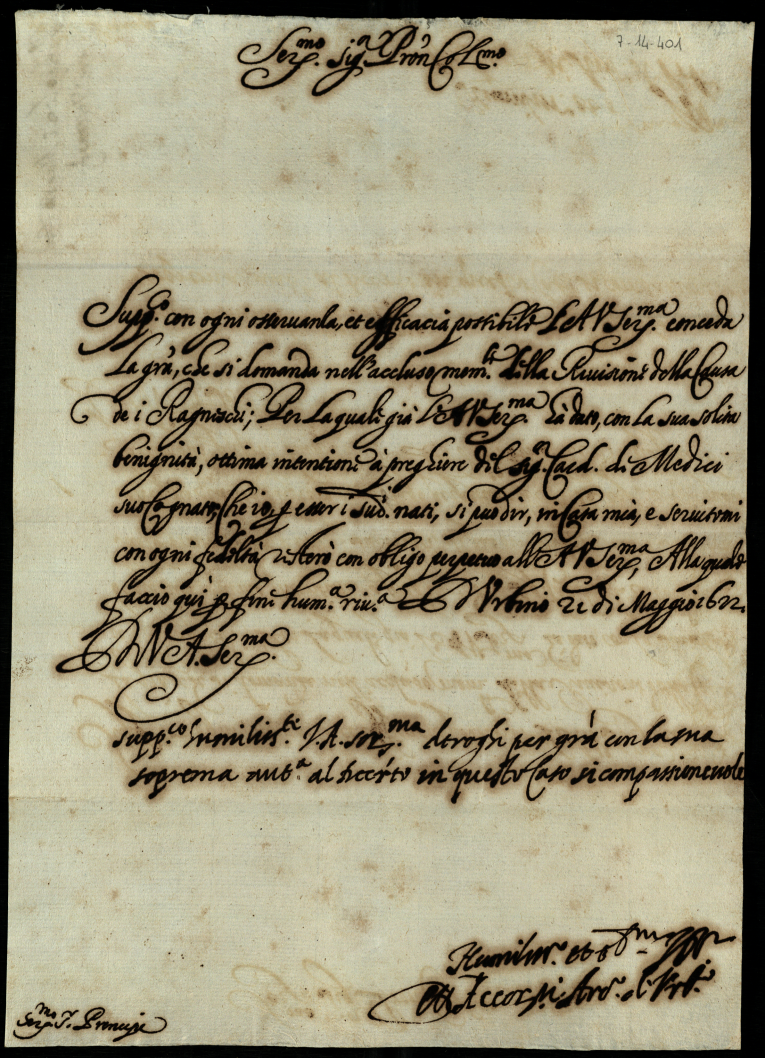 7-14-401
Ser.mo Sig.r Pron Col.mo
Supp.co con ogni osseruanza, et efficacia possibile l'A V Ser.ma conceda
la gra, che si domanda nell'accluso mem.le della Reuisione della Causa
de i Ragneschi; Per la quale già l'A V Ser.ma hà dato, con la sua solita
benignità, ottima intentione à preghiere del Sig.r Card. di Medici
suo Cognato, Che io, p esser i sud. nati, si può dir, in Casa mia, e seruitomi
con ogni fedeltà resterò con obligo perpetuo all'A V Ser.ma, Alla quale
faccio quì p fine hum.a riu.a D'Vrbino 21 di Maggio 1622.
D V A. Ser.ma
supp.co humiliss.te V.A. ser.ma deroghi per gra con la sua
soprema aut.a al decreto in questo Caso si compassioneuole
Humiliss.o et
Accorsi Arc.o di Vrb.o
Ser.mo S. Principe